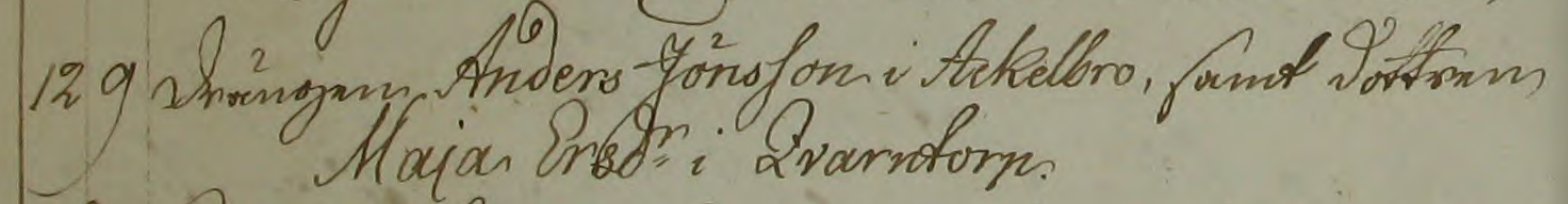 129 Drängen Anders Jönsson i Ackelbro, samt Dottren
Maja Ersdr i Qvarntorp.